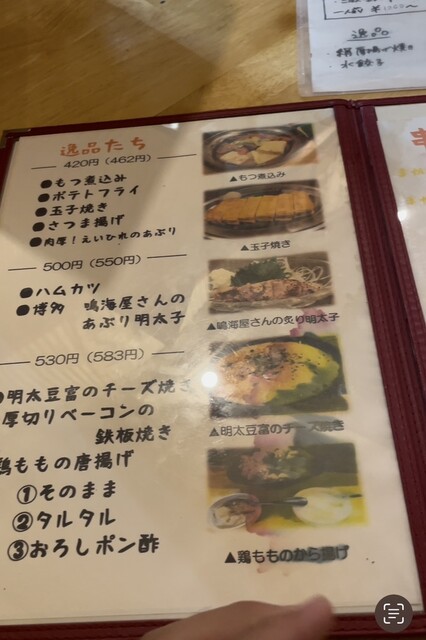 逸品
水餃子
逸品たち
420円（462円）
●もつ煮込み
●ポテトフライ
●玉子焼き
●さつま揚げ
●肉厚！えいひれのあぶり
500円（550円）
●ハムカツ
●博多 鳴海屋さんの
あぶり明太子
530円（583円）
●明太豆富のチーズ焼き
厚切りベーコンの
鉄板焼き
鶏ももの唐揚げ
①そのまま
②タルタル
③おろしポン酢
▲もつ煮込み
▲玉子焼き
▲鳴海屋さんの炙り明太子
▲明太豆富のチーズ焼き
▲鶏もものから揚げ
串